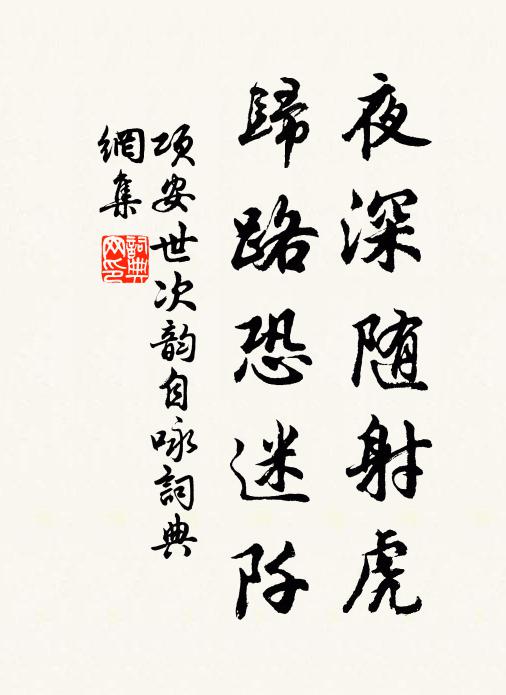 夜深随射虎
歸路恐迷阡
项安世次韵自咏詞典
網集
詞典
网印